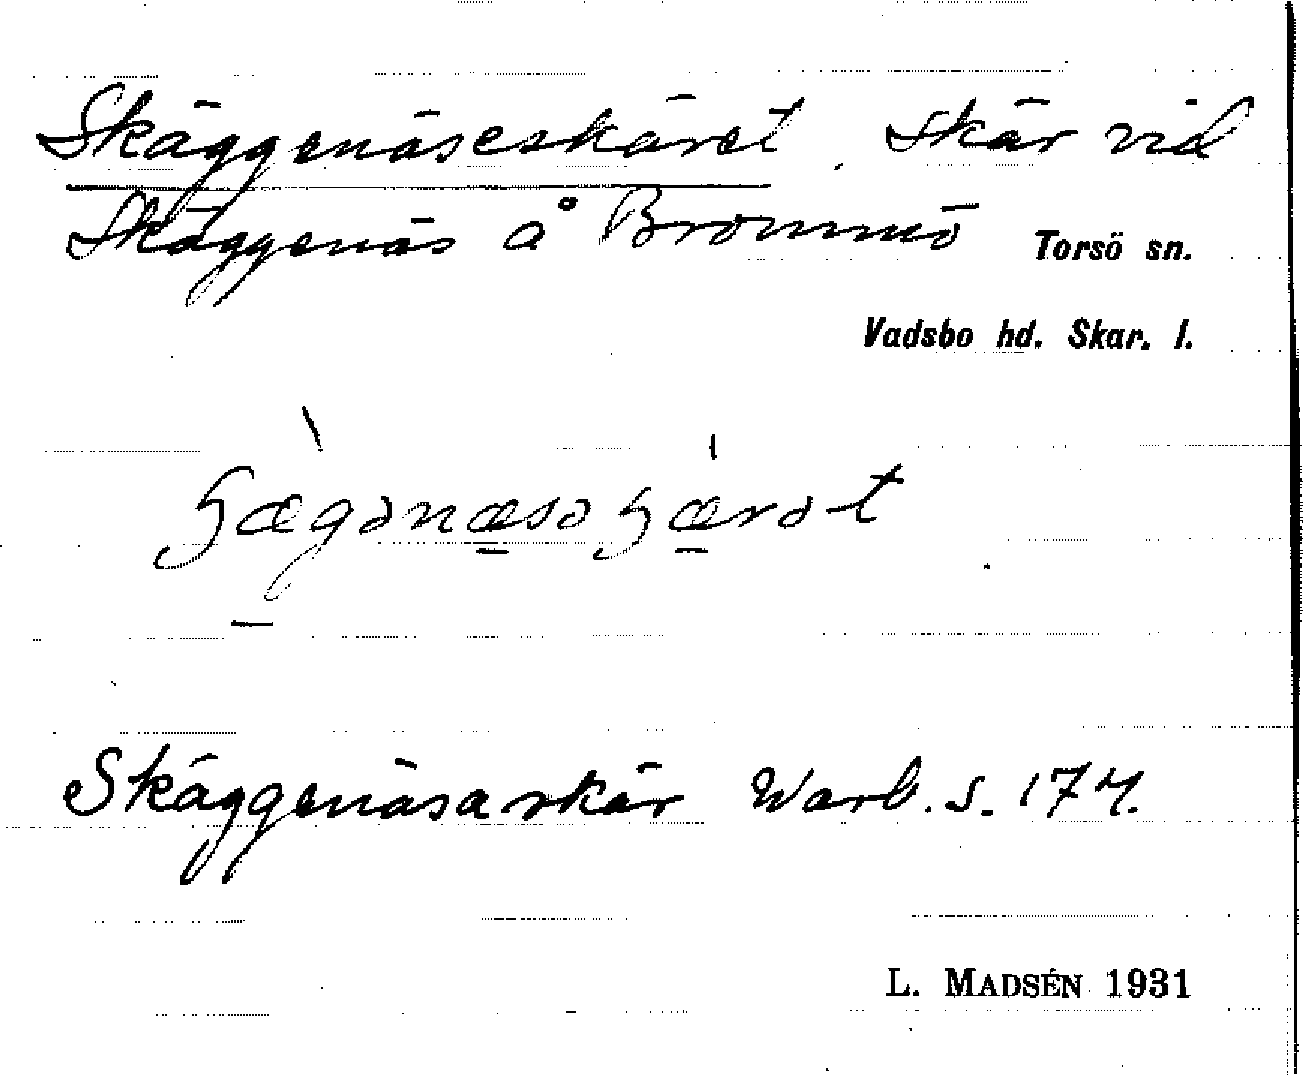 Skäggenäseskäret. Skär vid
Skäggenäs å Brommö Torsö sn.
Vadsbo hd. Skar. l.
Skäggenäsaskär Warb. s. 174.
L. MADSÉN 1931